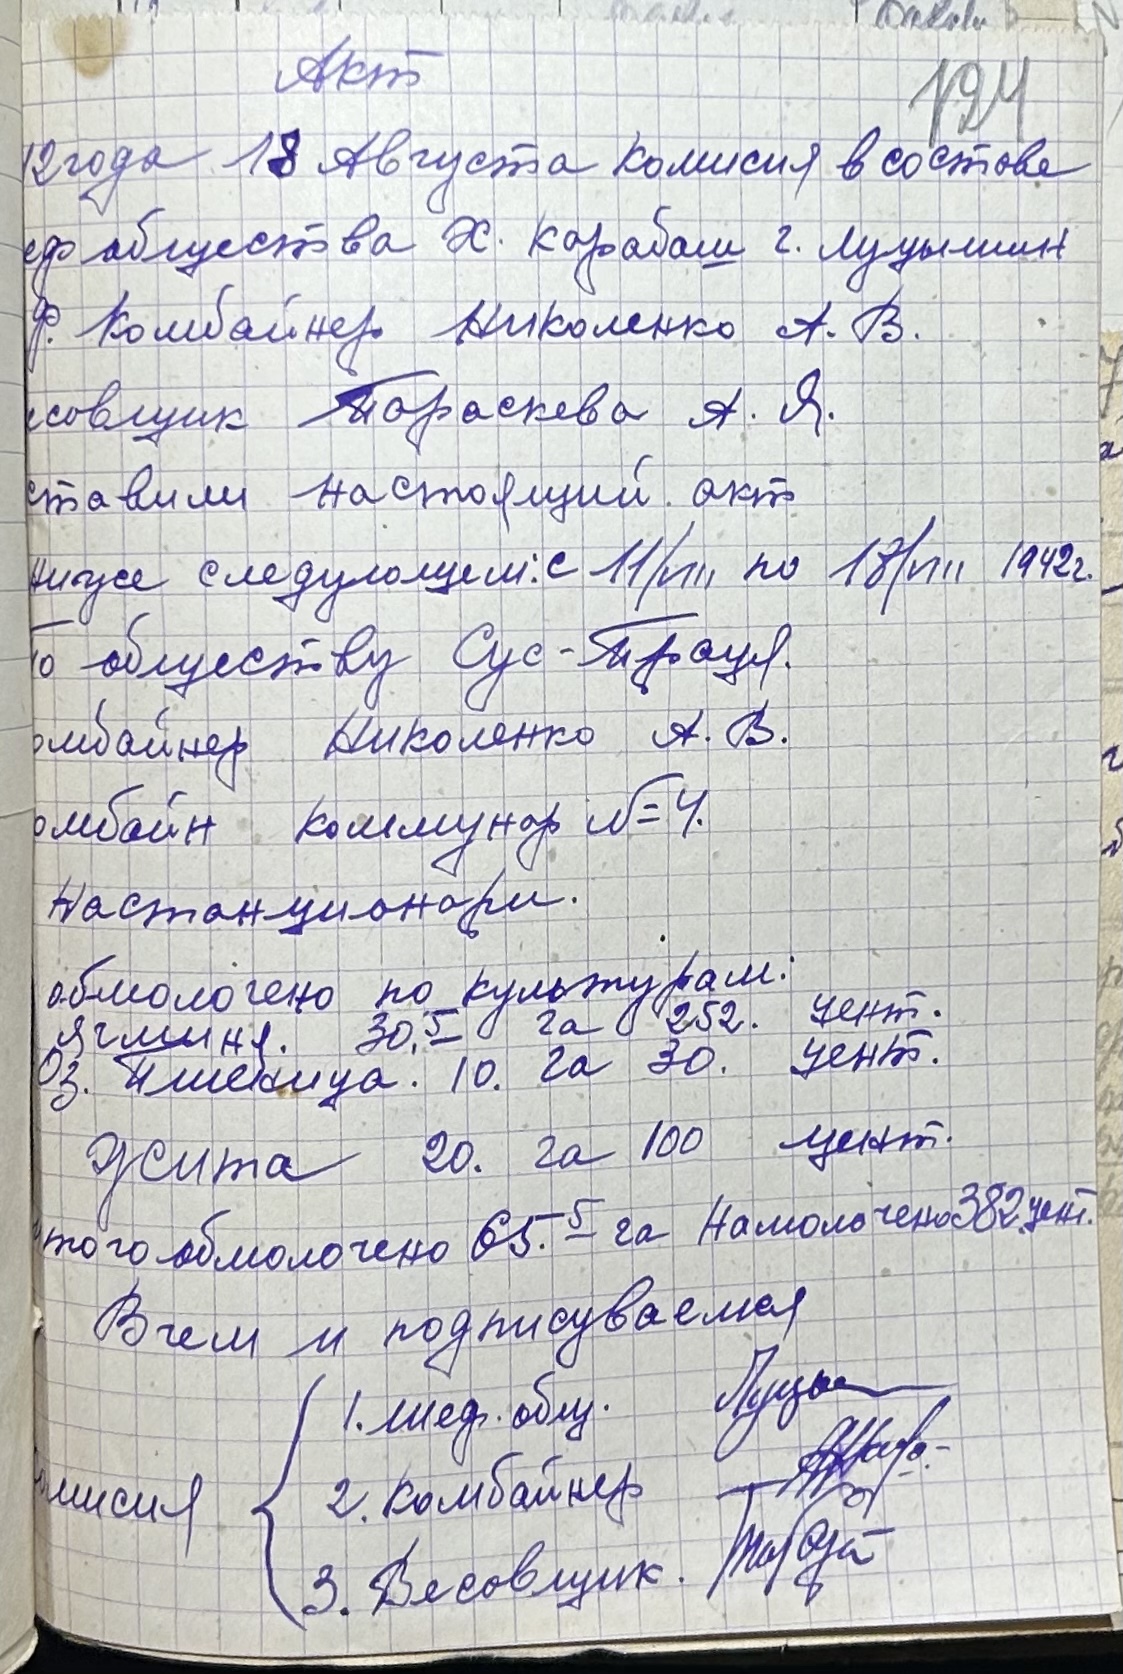 Акт
124
42 года 18 Августа комисия в состове
еф общества Х. Карабаш г. Луцышин
Ф. Комбайнер Николенко А. В.
есовщик Параскева А. Я.
ставили настоящий акт
нигусе следующем: с 11/VIII по 17/VIII 1942 г.
По обществу Сус-Трацея.
омбайнер Николенко А. В.
омбайн Коммунар N=4.
Настанционари.
обмолочено по культурам:
Ягминя. 30,5 га 252. цент.
Оз. Пшеница. 10. га 30. цент.
Жита 20. га 100 цент.
того обмолочено 65.5 га Намолочено 382. цент.
В чем и подписуваемся
1. шеф. общ. Луцы
омисия
2. Комбайнер
3. Весовщик.